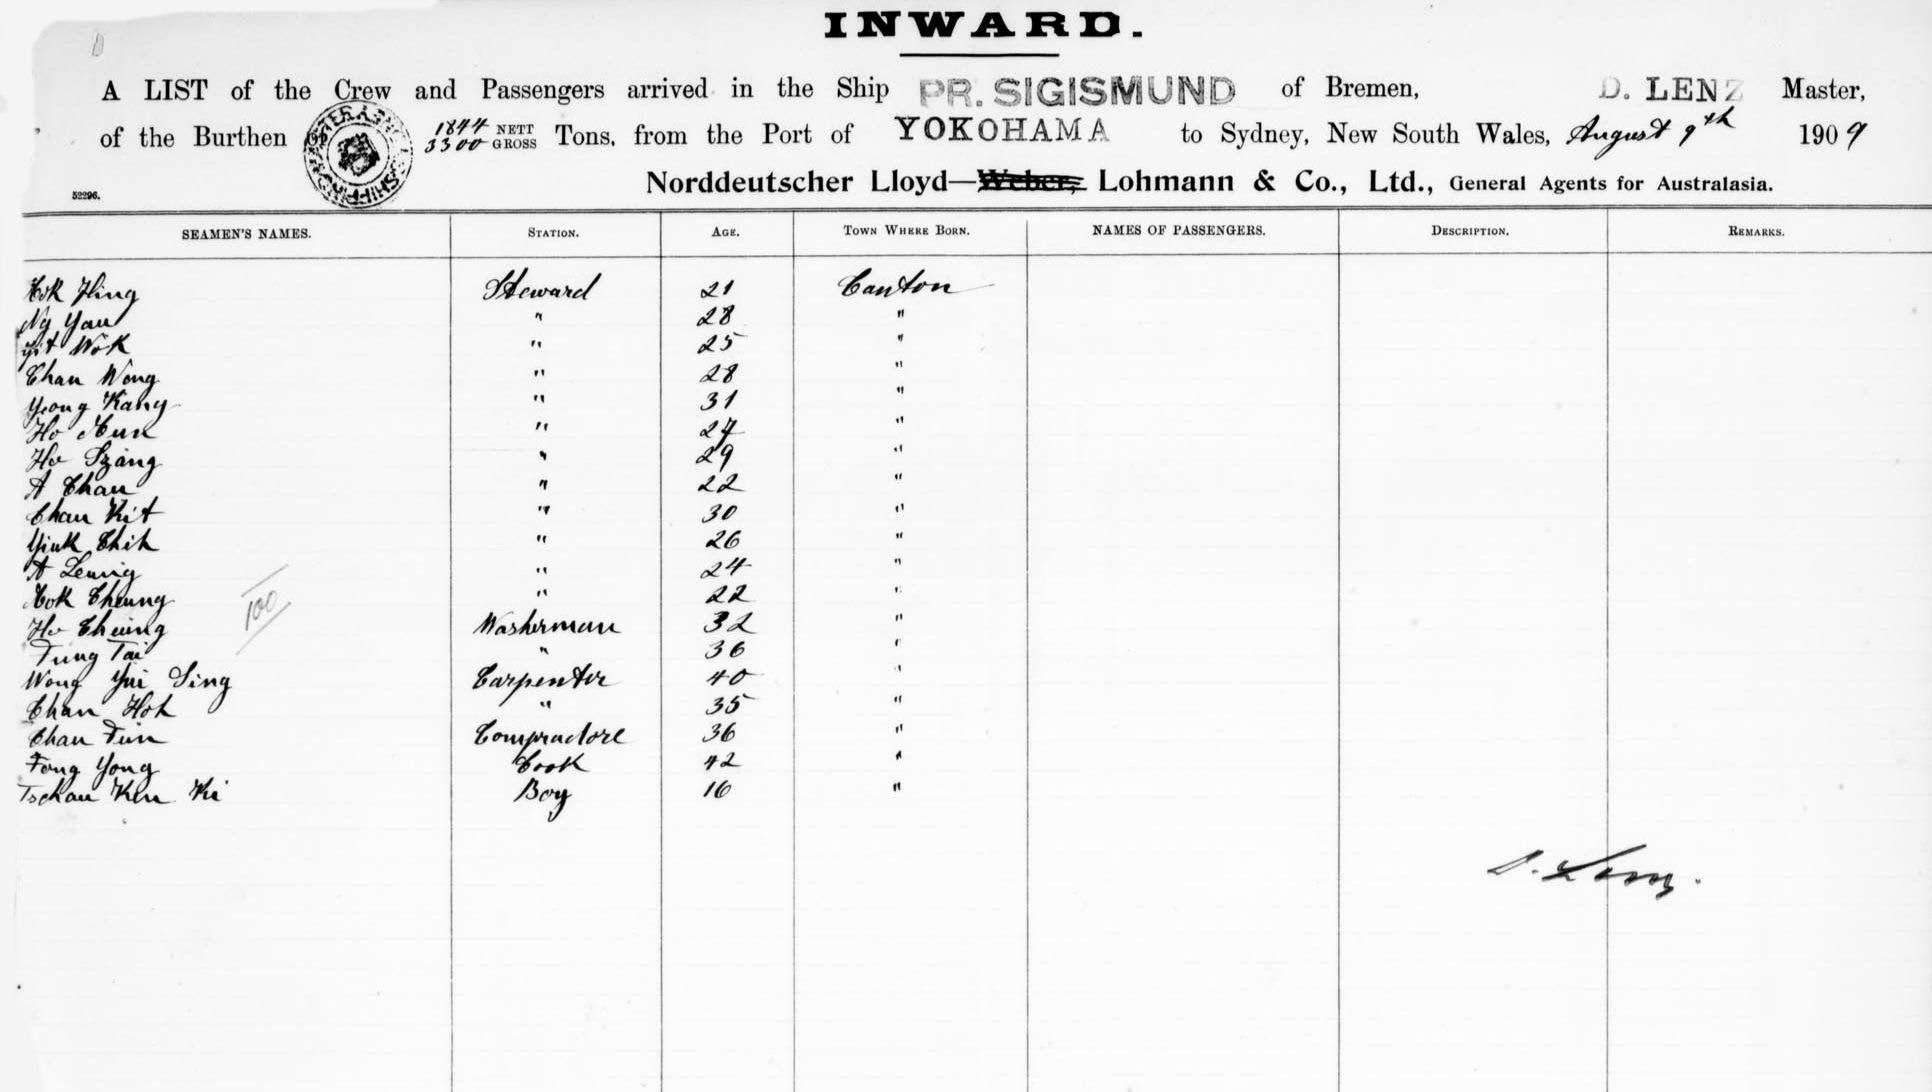 INWARD.
A LIST of the Crew and Passengers arrived in the Ship PR. SIGISMUND of Bremen, D. LENZ Master,
of the Burthen 1844 NETT 3300 GROSS Tons, from the Port of YOKOHAMA to Sydney, New South Wales, August 9th 1909
52296.
Norddeutscher Lloyd—Weber, Lohmann & Co., Ltd., General Agents for Australasia.
SEAMEN'S NAMES. STATION. AGE. TOWN WHERE BORN. NAMES OF PASSENGERS. DESCRIPTION. REMARKS.
Hing Steward 21 Canton
Ng Yau " 28 "
Wok " 25 "
Chan Wong " 28 "
Yeong Kang " 31 "
Ho " 27 "
Ho Szang " 29 "
A Chan " 22 "
Chan Kit " 30 "
Chik " 26 "
A Leung " 24 "
Cheung " 22 "
Ho Cheung Washerman 32 "
Fung Tai " 36 "
Wong Yui Sing Carpenter 40 "
Chan Hok " 35 "
Chan Fun Compradore 36 "
Fong Yong Cook 42 "
Tschau Ken Ki Boy 16 "
100
D. Lenz.